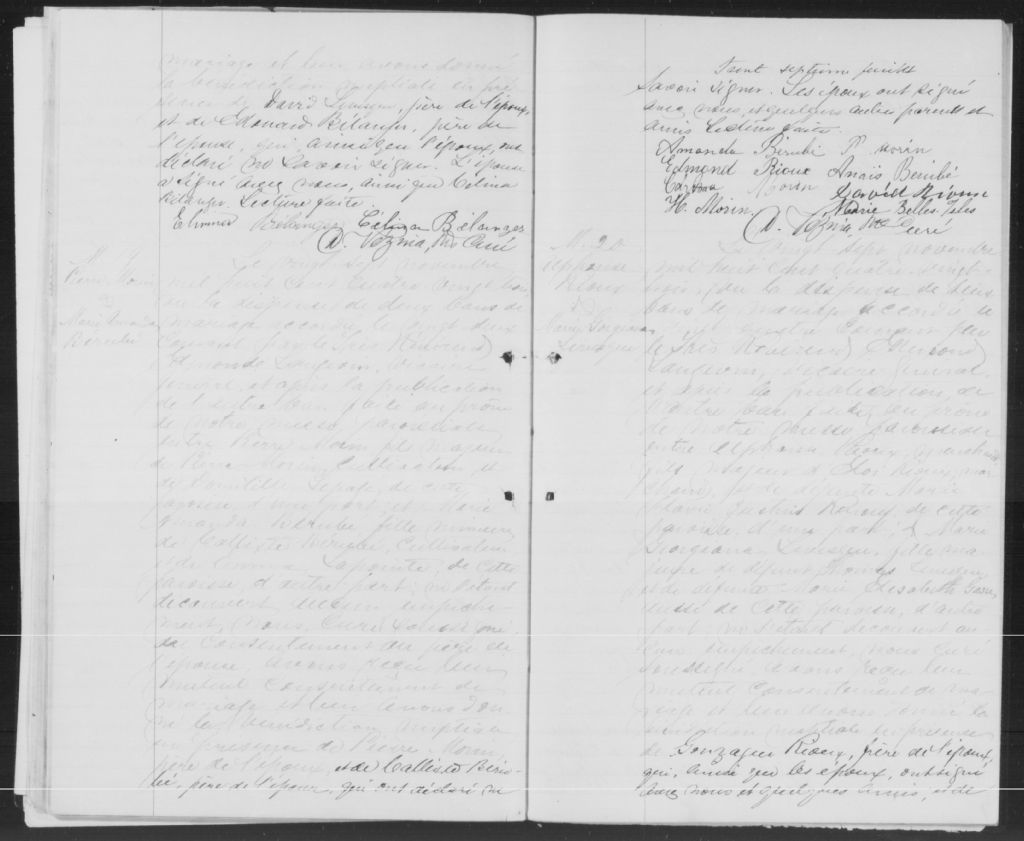 mariage et leur avons donné
la bénédiction nuptiale en pré-
sence de David Levesque, père de l'époux,
et de Edouard Bélanger, père de
l'épouse, qui, ainsi que l'époux, ont
déclaré ne savoir signer. L'épouse
a signé avec nous, ainsi que Célina
Bélanger. Lecture faite.
Bélanger Célina Bélanger
D. Vézina, Ptre Curé
M.
Pierre Morin
&
Marie Amanda
Bérubé
Le vingt sept novembre
mil huit cent quatre vingt
vu la dispense de deux bans de
mariage accordée le vingt deux
courant par le Très Révérend
Edmond Langevin, Vicaire
général, et après la publication
de l'autre ban faite au prône
de notre messe paroissiale
entre Pierre Morin fils majeur
de Pierre Morin, Cultivateur et
de Domitille Lepage, de cette
paroisse, d'une part; et Marie
Amanda Bérubé fille mineure
de Calliste Bérubé, Cultivateur
& de Lapointe, de cette
paroisse, d'autre part; ne s'étant
découvert aucun empêche-
ment, Nous, Curé soussigné,
du consentement du père de
l'épouse, avons reçu leur
mutuel consentement de
mariage et leur avons don-
né la bénédiction nuptiale
en présence de Pierre Morin,
père de l'époux, et de Calliste Béru-
bé, père de l'épouse, qui ont déclaré ne
Trent septième feuillet
savoir signer. Les époux ont signé
avec nous, et quelques autres parents et
amis. Lecture faite.
Amanda Bérubé P. Morin
Edmond Rioux Anaïs Bérubé
Morin
H. Morin. Marie Belles-Isles
D. Vézina, Ptre Curé
M.
Alphonse
Rioux
&
Marie Georgeanna
Levesque
Le vingt sept novembre
mil huit cent quatre-vingt
vu la dispense de deux
bans de mariage accordée le
vingt quatre courant par
le Très Révérend Edmond
Langevin, Vicaire général,
et après la publication de
l'autre ban faite au prône
de notre messe paroissiale
entre Alphonse Rioux, marchand
fils majeur d' Rioux,
et de défunte Marie
Rioux de cette
paroisse, d'une part; & Marie
Georgeanna Levesque, fille ma-
jeure de défunt Thomas Levesque
et de défunte Marie Elisabeth
de cette paroisse, d'autre
part; ne s'étant découvert au-
cun empêchement, Nous Curé
soussigné avons reçu leur
mutuel consentement de ma-
riage et leur avons donné la
bénédiction nuptiale en présence
de Gonzague Rioux, frère de l'époux,
qui, ainsi que les époux, ont signé
avec nous et quelques amis, et de